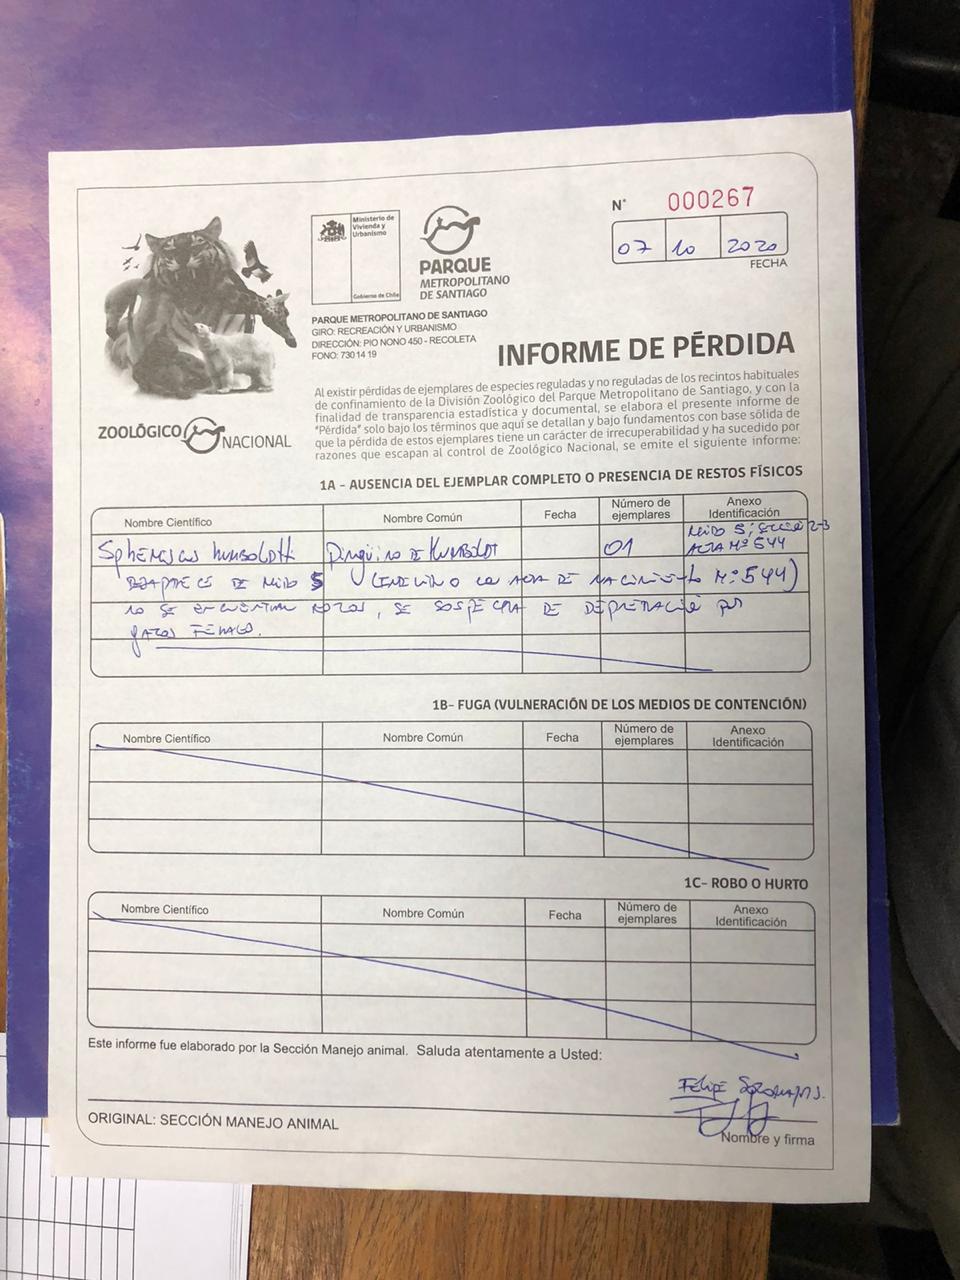 N° 000267
07 10 2020
FECHA
Ministerio de
Vivienda y
Urbanismo
Gobierno de Chile
PARQUE
METROPOLITANO
DE SANTIAGO
PARQUE METROPOLITANO DE SANTIAGO
GIRO: RECREACIÓN Y URBANISMO
DIRECCIÓN: PIO NONO 450 - RECOLETA
FONO: 730 14 19
ZOOLÓGICO NACIONAL
INFORME DE PÉRDIDA
Al existir pérdidas de ejemplares de especies reguladas y no reguladas de los recintos habituales
de confinamiento de la División Zoológico del Parque Metropolitano de Santiago, y con la
finalidad de transparencia estadística y documental, se elabora el presente informe de
"Pérdida" solo bajo los términos que aquí se detallan y bajo fundamentos con base sólida de
que la pérdida de estos ejemplares tiene un carácter de irrecuperabilidad y ha sucedido por
razones que escapan al control de Zoológico Nacional, se emite el siguiente informe:
1A - AUSENCIA DEL EJEMPLAR COMPLETO O PRESENCIA DE RESTOS FÍSICOS
Nombre Científico Nombre Común Fecha Número de ejemplares Anexo Identificación
Spheniscus humboldti Pingüino de Humboldt 01 Nido 5; 2-3
Acta N° 544
de nido 5 de nacimiento N° 544)
no se encuentran , se sospecha de depredación por
gatos ferales.
1B- FUGA (VULNERACIÓN DE LOS MEDIOS DE CONTENCIÓN)
Nombre Científico Nombre Común Fecha Número de ejemplares Anexo Identificación
1C- ROBO O HURTO
Nombre Científico Nombre Común Fecha Número de ejemplares Anexo Identificación
Este informe fue elaborado por la Sección Manejo animal. Saluda atentamente a Usted:
Felipe
ORIGINAL: SECCIÓN MANEJO ANIMAL
Nombre y firma